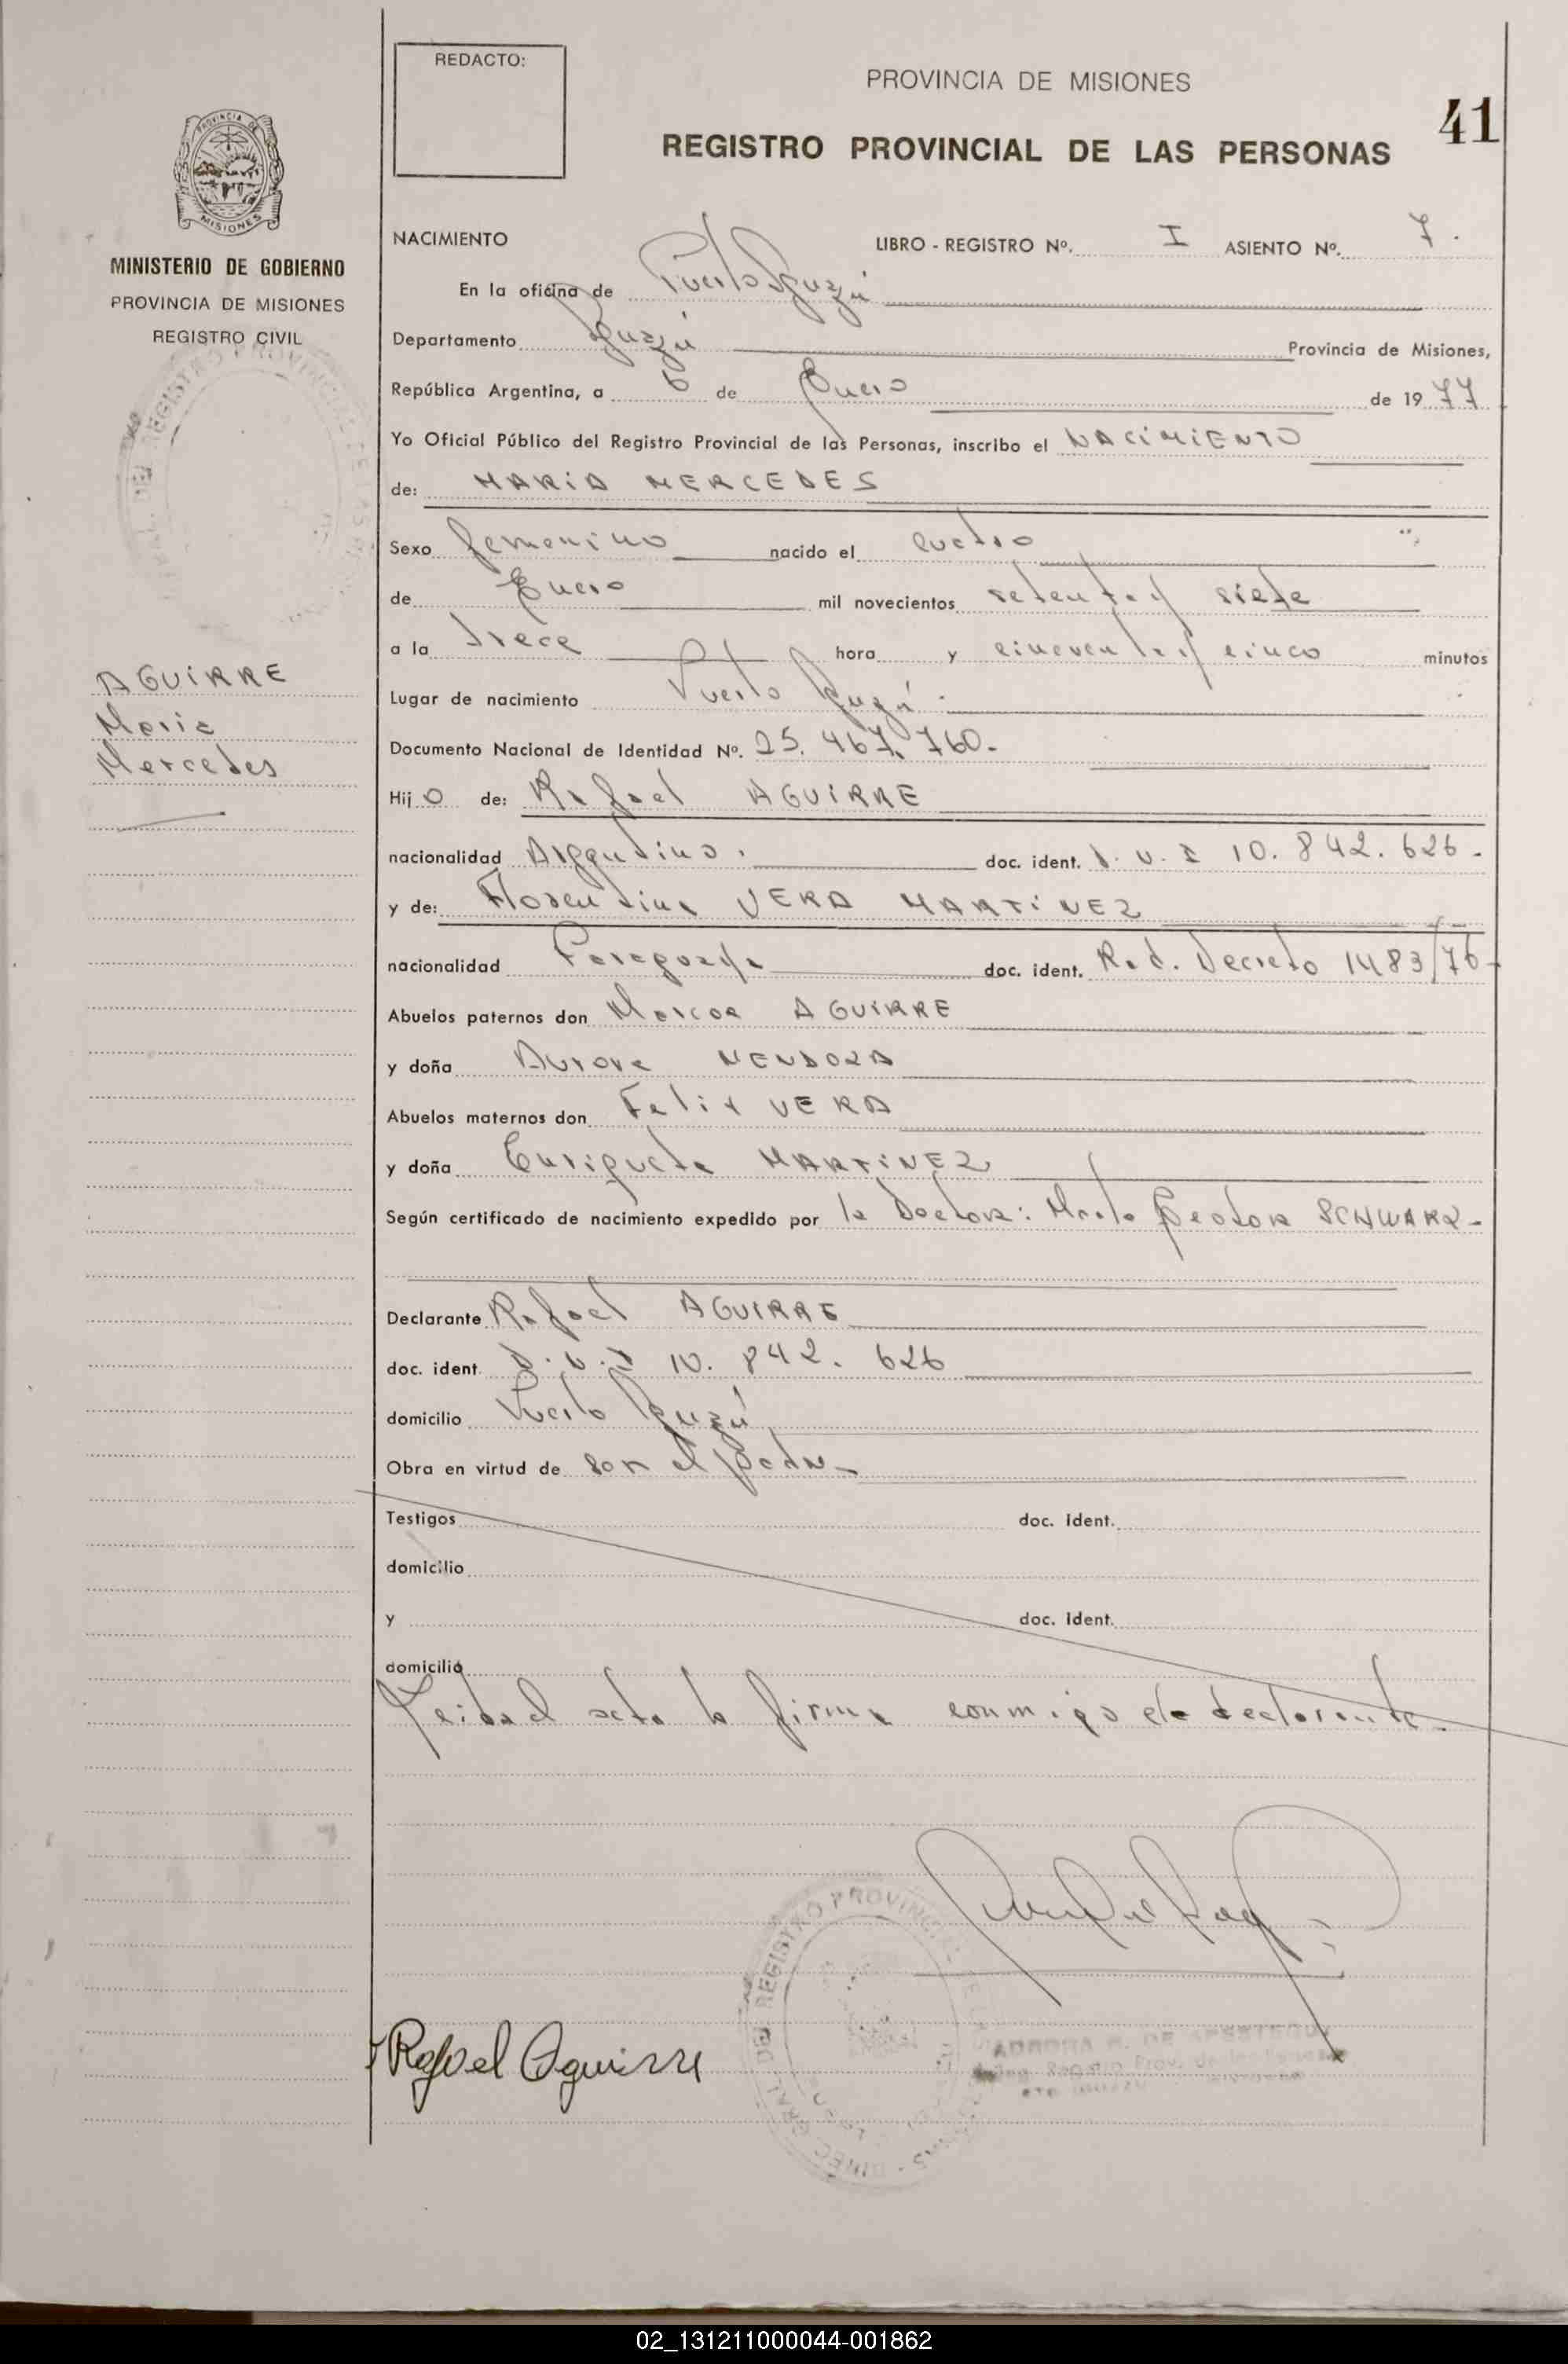 REDACTO:
PROVINCIA DE MISIONES
41
REGISTRO PROVINCIAL DE LAS PERSONAS
MISIONES
MINISTERIO DE GOBIERNO
PROVINCIA DE MISIONES
REGISTRO CIVIL
AGUIRRE
Maria
Mercedes
NACIMIENTO LIBRO - REGISTRO Nº. I ASIENTO Nº. 7.
En la oficina de Puerto Iguazú
Departamento Iguazú Provincia de Misiones,
República Argentina, a 6 de Enero de 1977
Yo Oficial Público del Registro Provincial de las Personas, inscribo el NACIMIENTO
de: MARIA MERCEDES
Sexo femenino nacido el cuatro
de Enero mil novecientos setenta y siete
a la trece hora y cincuenta y cinco minutos
Lugar de nacimiento Puerto Iguazú.
Documento Nacional de Identidad Nº. 25.467.760.-
Hijo de: Rafael AGUIRRE
nacionalidad Argentino. doc. ident. D.N.I 10.842.626-
y de: Florentina VERA MARTINEZ
nacionalidad Paraguaya doc. ident. Rad. Decreto 1483/76-
Abuelos paternos don Marcos AGUIRRE
y doña Aurora MENDOZA
Abuelos maternos don Felix VERA
y doña Enriqueta MARTINEZ
Según certificado de nacimiento expedido por la Doctora: Marta SCHWARZ-
Declarante Rafael AGUIRRE
doc. ident. D.N.I 10.842.626
domicilio Puerto Iguazú
Obra en virtud de ser el padre-
Testigos doc. ident.
domicilio
y doc. ident.
domicilio
Leida el acta la firma conmigo el declarante.
Rafael Aguirre
02_131211000044-001862